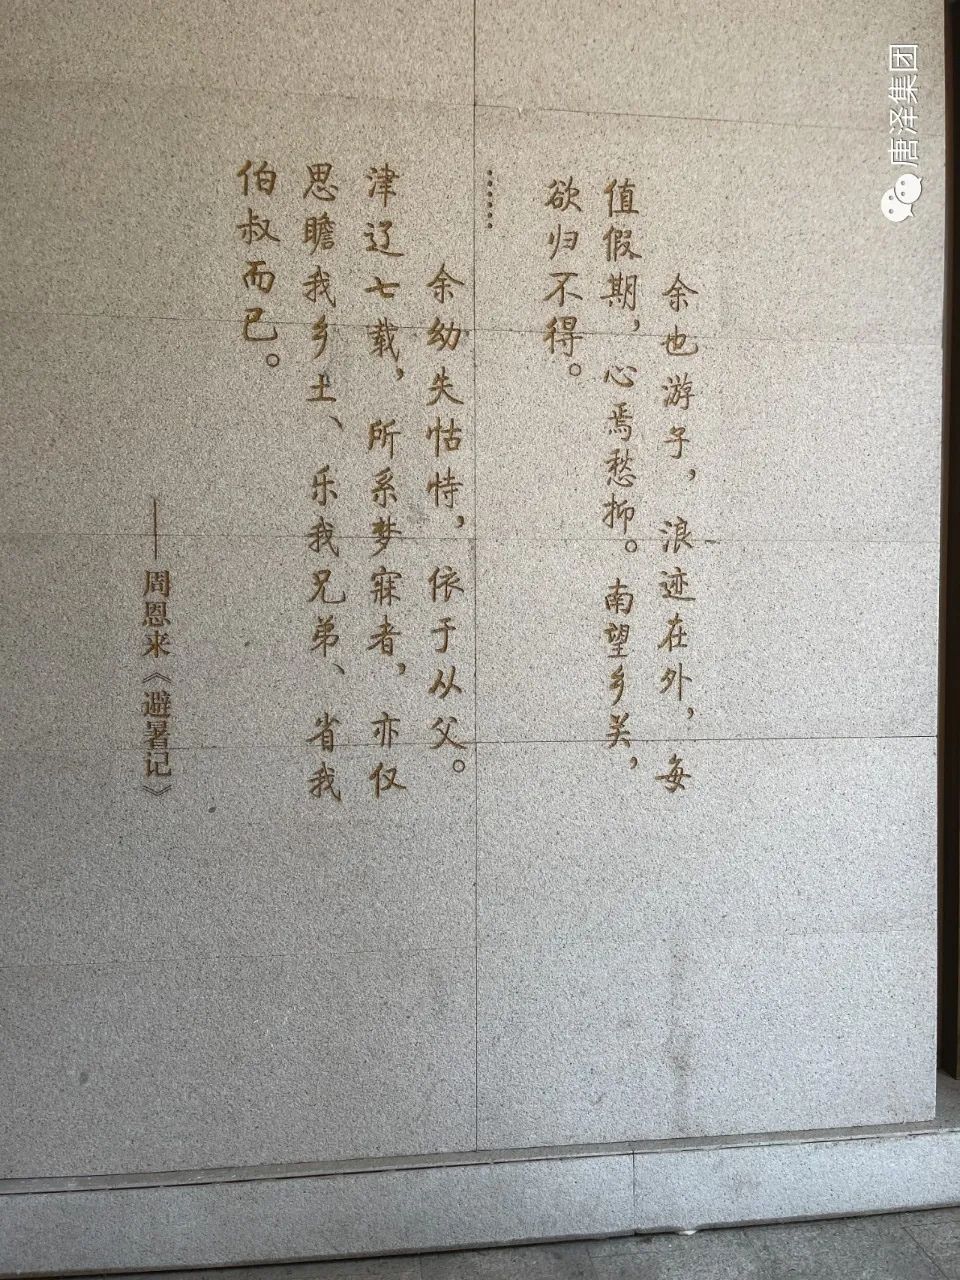 余也游子，浪迹在外，每
值假期，心焉愁抑。南望乡关，
欲归不得。
……
余幼失怙恃，依于从父。
津辽七载，所系梦寐者，亦仅
思瞻我乡土、乐我兄弟、省我
伯叔而已。
——周恩来《避暑记》
唐泽集团